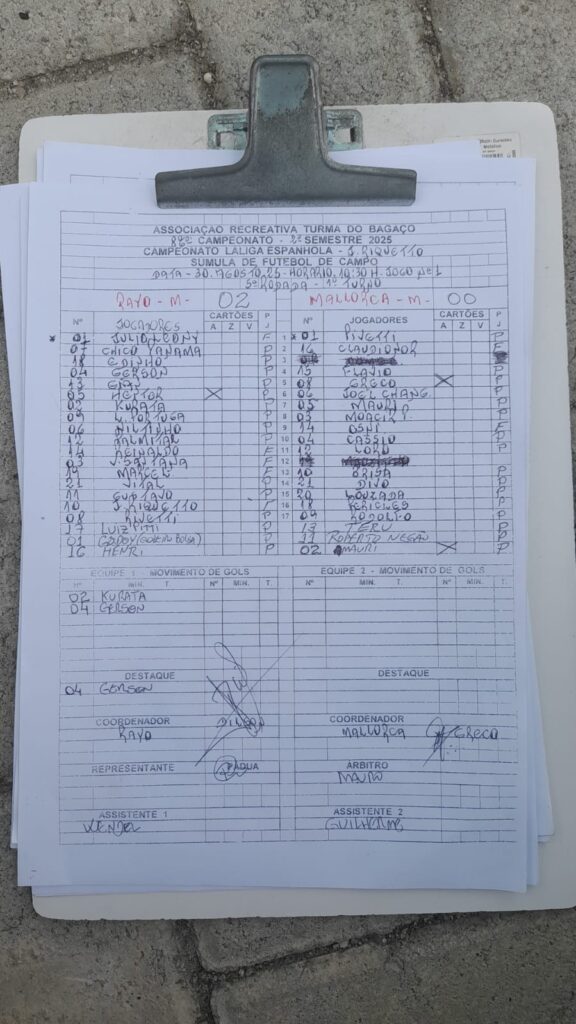 ASSOCIAÇAO RECREATIVA TURMA DO BAGAÇO
88º CAMPEONATO - 2º SEMESTRE 2025
CAMPEONATO LALIGA ESPANHOLA - J. RIQUETTO
SUMULA DE FUTEBOL DE CAMPO
DATA - 30.AGOSTO.25 - HORARIO. 10:30 H - JOGO Nº 1
5ª RODADA - 1º TURNO
RAYO - M - 02 MALLORCA - M - 00
Nº JOGADORES CARTÕES A Z V P J Nº JOGADORES CARTÕES A Z V P J
01 JULIO LEONY F 1 01 PIVETTI P
07 CHICO YANAMA P 2 16 CLAUDIONOR F
18 EDINHO P 3
04 GERSON P 4 15 FLAVIO P
13 P 5 08 GRECO X P
05 HEITOR X P 6 06 JOEL CHANG. P
02 KURATA P 7 05 MAURI P
09 L. PORTUGA P 8 03 MOACIR P. P
06 NILTINHO P 9 14 OSNI F
12 PALMITAR P 10 04 CASSIO P
14 REINALDO F 11 12 LOLO P
03 V. SANTANA F 12
19 MARCEL F 13 10 BRISA P
21 VITAL P 14 21 DIVO P
11 GUSTAVO P 15 20 LOUZADA P
10 J. RIQUETTO P 16 18 PERICLES P
08 P 17 09 RODOLFO P
17 LUIZ PITTI P 13 TERU P
01 GODOY (GOLEIRO BOLSA) P 11 ROBERTO NEGAO P
16 HENRI P 02 AMAURI X P
EQUIPE 1 - MOVIMENTO DE GOLS EQUIPE 2 - MOVIMENTO DE GOLS
Nº MIN. T. Nº MIN. T. Nº MIN. T. Nº MIN. T.
02 KURATA
04 GERSON
DESTAQUE DESTAQUE
04 GERSON
COORDENADOR COORDENADOR
RAYO MALLORCA GRECO
REPRESENTANTE PADUA ARBITRO
MAURO
ASSISTENTE 1 ASSISTENTE 2
WENDEL GUILHERME